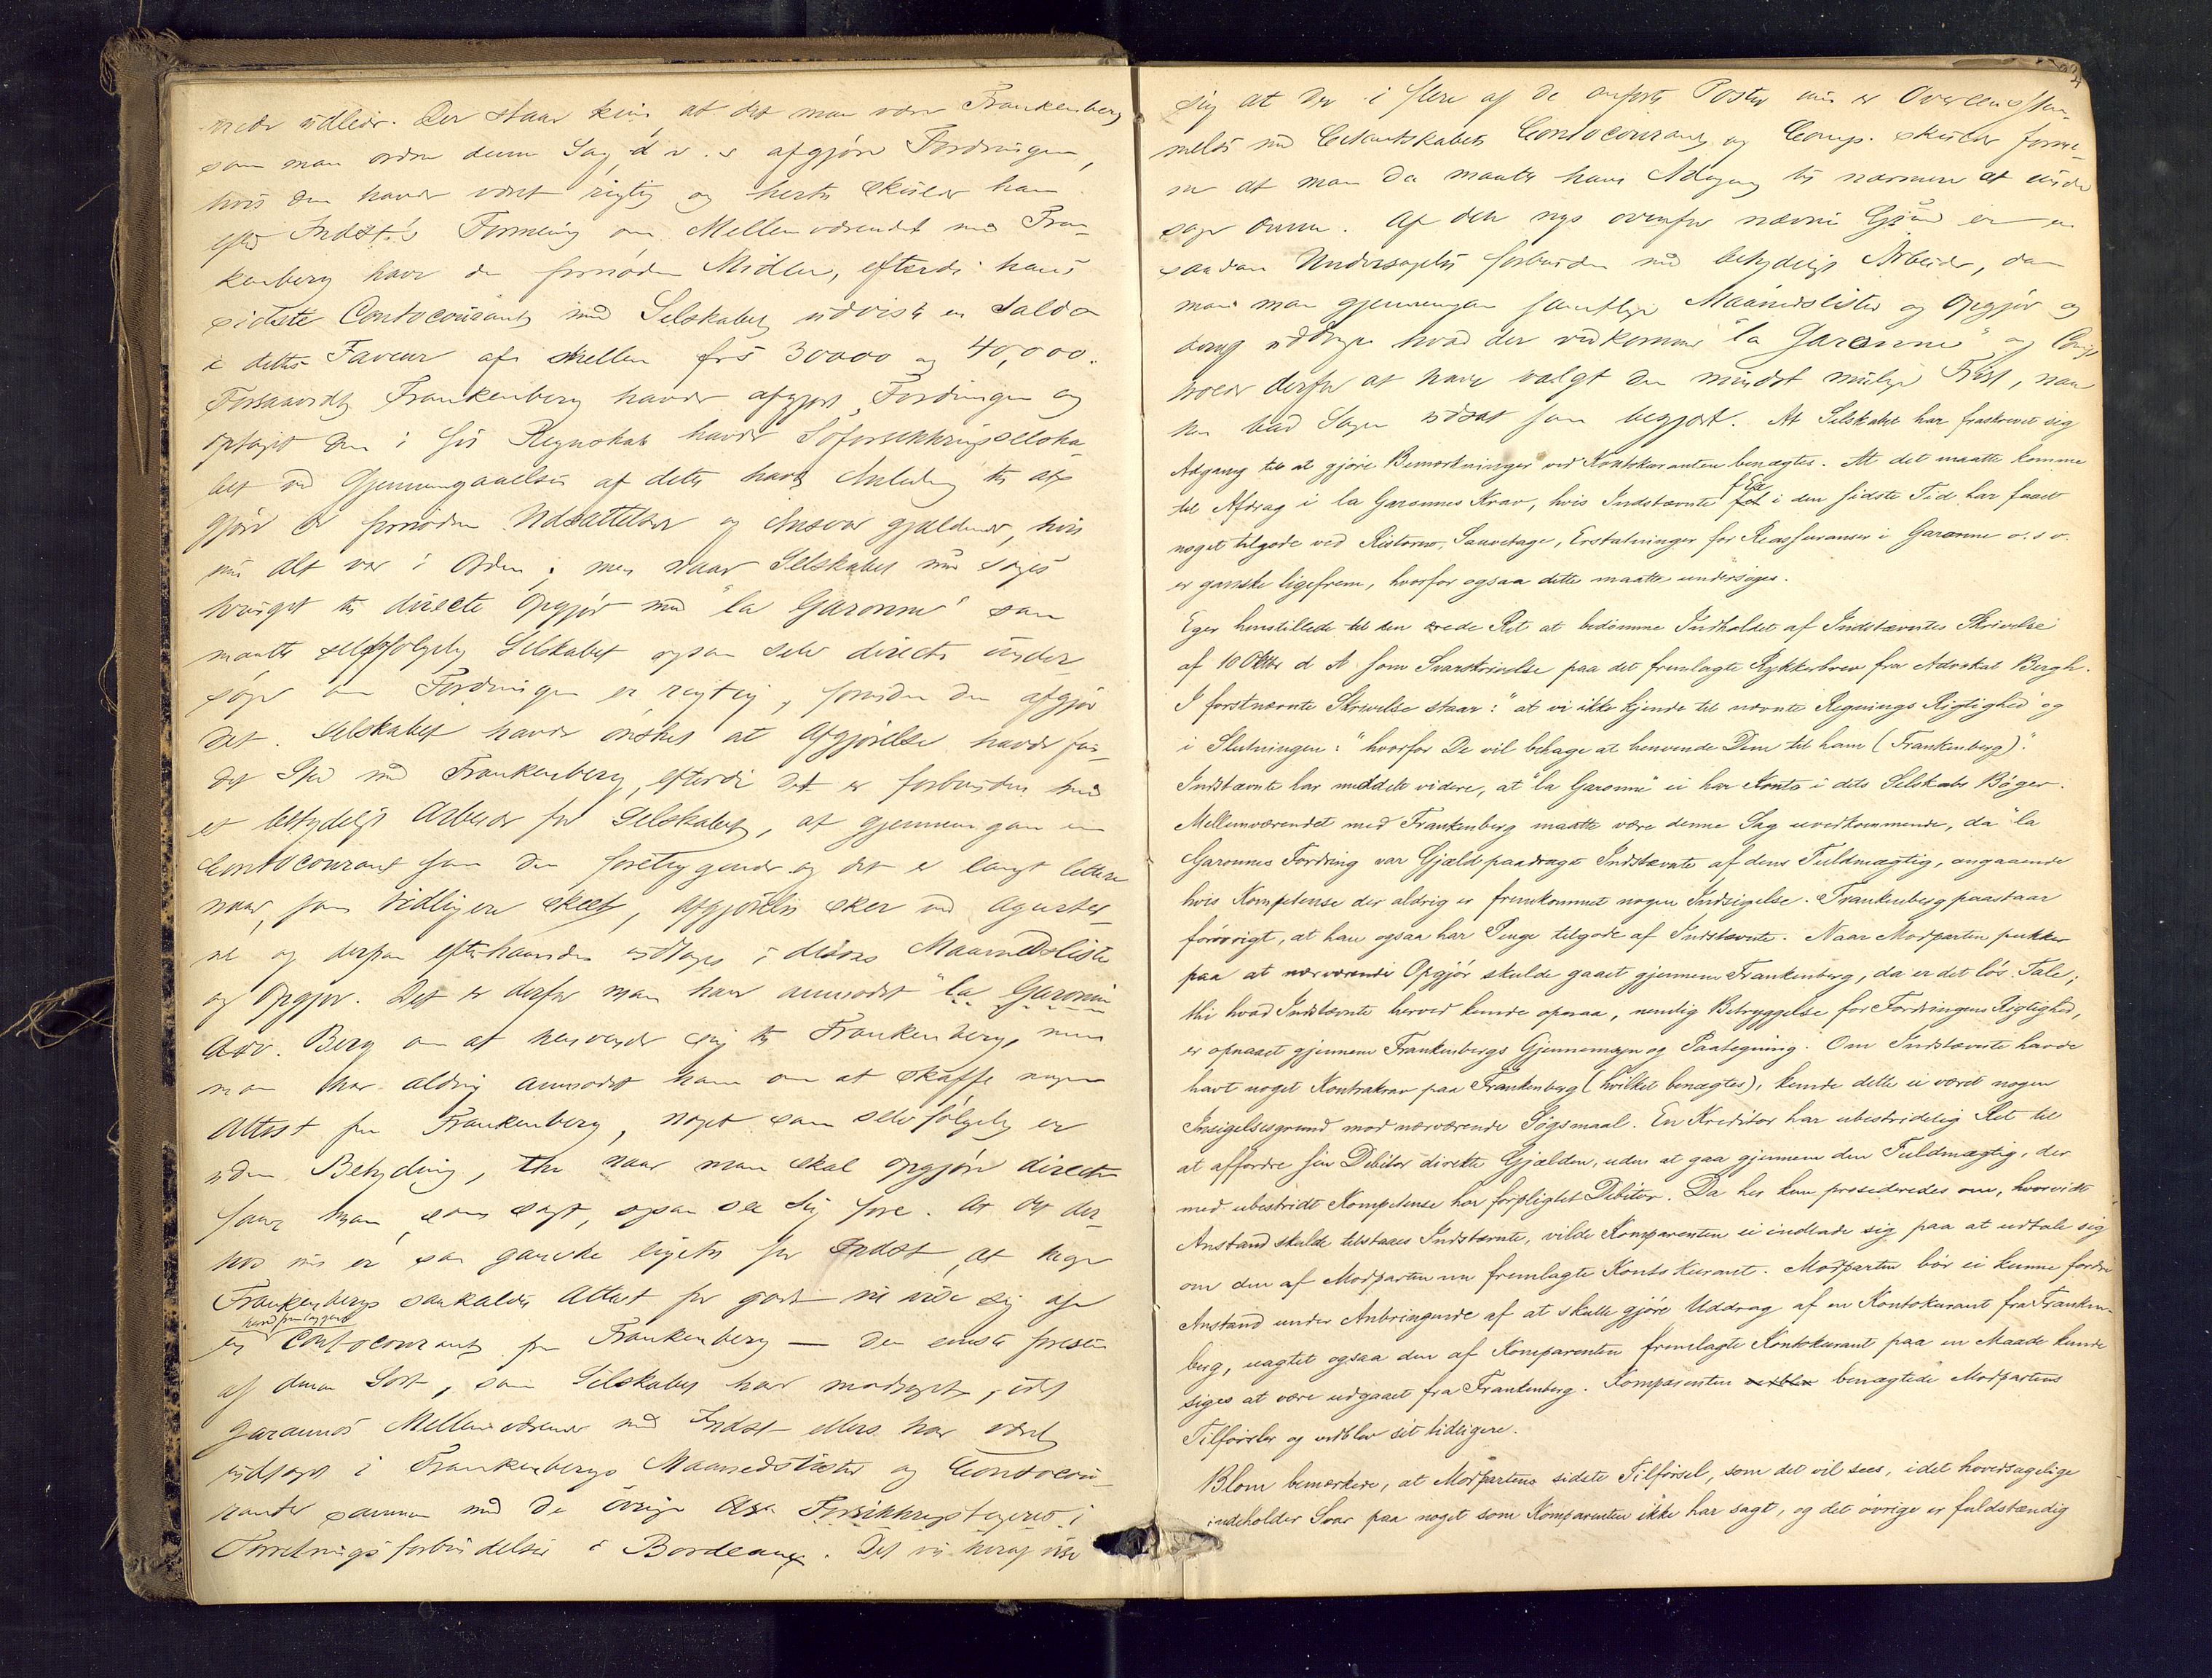 udleder. Der staar kun, at det maa være Frankenberg
som maa ordne denne Sag, d. v. s. afgjøre Fordringen,
hvis den havde været rigtig og hertil skulde han
efter Indst.s Formening om Mellemværendet med Fran-
kenberg have de fornødne Midler, efterdi hans
sidste Contocourant med Selskabet udviste en Saldo
i dettes Faveur af mellem frs 30000 og 40,000.
Forsaavidt Frankenberg havde afgjort Fordringen og
optaget den i sit Regnskab havde Søforsikkringsselska-
bet ved Gjennemgaaelse af dette havt Anledning til at
gjøre de fornødne Udsættelser og Ansvar gjældende, hvis
ei alt var i Orden; men naar Selskabet nu søges
tvunget til directe Opgjør med "la Garonne" saa
maatte selvfølgelig Selskabet ogsaa selv directe under-
søge om Fordringen er rigtig, forinden den afgjør
det. Selskabet havde ønsket at Afgjørelse havde fun-
det Sted med Frankenberg, efterdi det er forbunden med
et betydeligt Arbeide for Selskabet, at gjennemgaa en
Contocourant som den foreliggende og det er langt lettere
naar, som tidligere skeet, Afgjørelse sker ved Agenter-
ne og derpaa efterhaanden udtages i disses Maanedslister
og Opgjør. Det er derfor man har anmodet "la Garonne
Adv. Berg om at henvende sig til Frankenberg, men
man har aldrig anmodet ham om at skaffe nogen
Attest fra Frankenberg, noget som selvfølgelig er
uden Betydning, thi naar man skal opgjøre directe
faar man, som sagt, ogsaa see sig fore. At det der-
hos nu er saa ganske ligetil for Indst. at tage
Frankenbergs saakaldte Attest for god vil vise sig af
herved fremlagget
en Contocourant fra Frankenberg — den eneste
af denne Sort, som Selskabet har modtaget, idet
Garonnes Mellemværende med Indst. ellers har været
udtaget i Frankenbergs Maanedslister og Contocou-
ranter sammen med de øvrige Forsikkringstageres i
Forretningsforbindelse i Bordeaux. Det vil heraf vise
sig at der i flere af de anførte Poster ei er Overensstem-
melse med Contocourant og Comp. skulde forme-
ne at man da maatte have Adgang til nærmere at under-
søge denne. Af den nys ovenfor nævnte Grund er en
saadan Undersøgelse forbunden med betydeligt Arbeide, da
man maa gjennemgaa samtlige Maanedslister og Opgjør og
deraf uddrage hvad der vedkommer "la Garonne" og Comp.
troede derfor at have valgt den mindst mulige Frist, naar
han bad Sagen udsat som begjært. At Selskabet har fraskrevet sig
Adgang til at gjøre Bemærkninger ved Kontokuranten benægtes. At det maatte komme
til Afdrag i la Garonnes Krav, hvis Indstævnte i den sidste Tid har faaet
noget tilgode ved Ristorno, Sauvetage, Erstatninger for Reassuranser i Garonne o. s. v.
er ganske ligefrem, hvorfor ogsaa dette maatte undersøges.
Eger henstillede til den ærede Ret at bedømme Indholdet af Indstævntes Skrivelse
af 10 Oktbr d. A. som Svarskrivelse paa det fremlagte Rykkerbrev fra Advokat Bergh.
I førstnævnte Skrivelse staar: "at vi ikke kjende til nævnte Regnings Rigtighed" og
i Slutningen: "hvorfor De vil behage at henvende Dem til ham (Frankenberg)."
Indstævnte har meddelt videre, at "la Garonne" ei har Konto i dets Selskabs Bøger.
Mellemværendet med Frankenberg maatte være denne Sag uvedkommende, da "la
Garonnes Fordring var Gjæld paadraget Indstævnte af dens Fuldmægtig, angaaende
hvis Kompetense der aldrig er fremkommet nogen Indsigelse. Frankenberg paastaar
forøvrigt, at han ogsaa har Penge tilgode af Indstævnte. Naar Modparten pukker
paa at nærværende Opgjør skulde gaaet gjennem Frankenberg, da er det løs Tale;
thi hvad Indstævnte herved kunde opnaa, nemlig Betryggelse for Fordringens Rigtighed,
er opnaaet gjennem Frankenbergs Gjennemsyn og Paategning. Om Indstævnte havde
havt noget Kontrakrav paa Frankenberg (hvilket benægtes), kunde dette ei været nogen
Insigelsesgrund mod nærværende Søgsmaal. En Kreditor har ubestridelig Ret til
at affordre sin Debitor direkte Gjælden, uden at gaa gjennem den Fuldmægtig, der
med ubestridt Kompetense har forpligtet Debitor. Da her kun prosederedes om, hvorvidt
Anstand skulde tilstaaes Indstævnte, vilde Komparenten ei indlade sig paa at udtale sig
om den af Modparten nu fremlagte Konto Kurant. Modparten bør ei kunne fordre
Anstand under Anbringende af at skulle gjøre Uddrag af en Kontokurant fra Franken-
berg, uagtet ogsaa den af Komparenten fremlagte Kontokurant paa en Maade kunde
siges at være udgaaet fra Frankenberg. Komparenten benægtede Modpartens
Tilførsler og vedblev sit tidligere.
Blom bemærkede, at Modpartens sidste Tilførsel, som det vil sees, i det hovedsagelige
indeholder Svar paa noget som Komparenten ikke har sagt, og det øvrige er fuldstændig